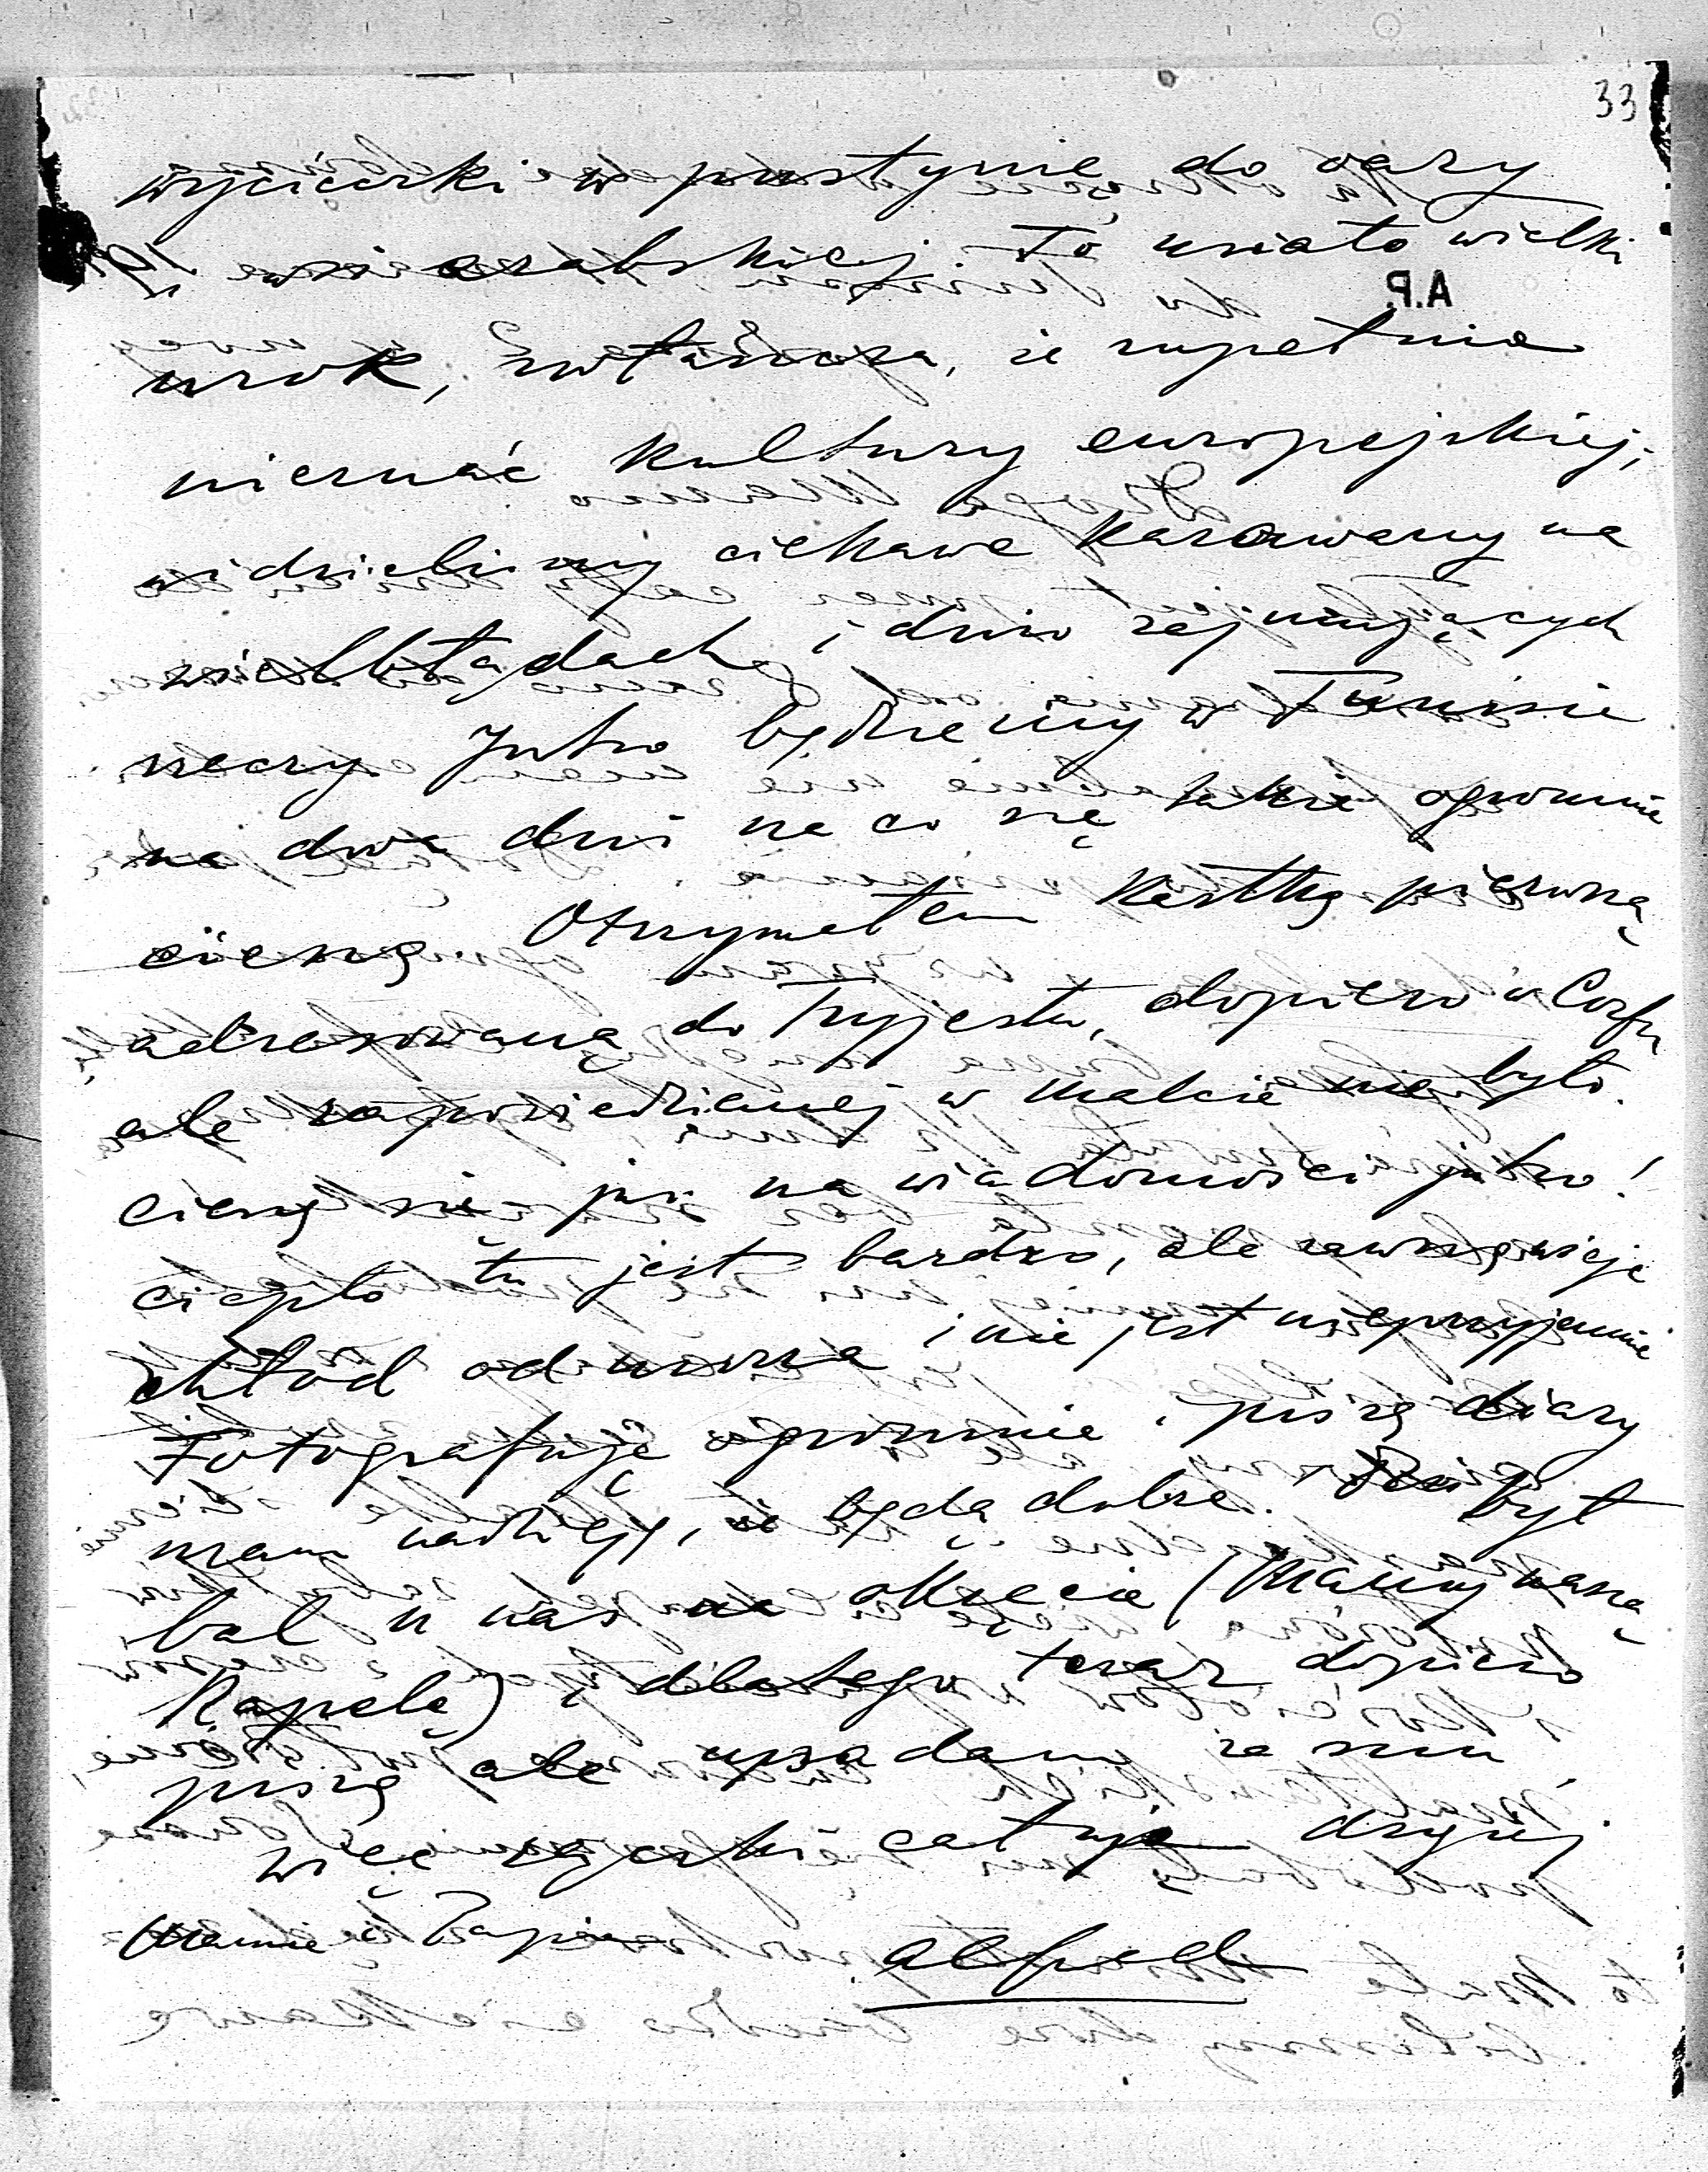 33
wycieczki w pustynię do oazy
i wsi arabskiej. To miało wielki
A.P.
urok, zwłaszcza, że zupełnie
nieznać kultury europejskiej,
widzieliśmy ciekawe karawany na
wielbłądach i dużo zajmujących
rzeczy. Jutro będziemy w Tunisie
na dwa dni na co się także ogromnie
cieszę. Otrzymałem kartkę pierwszą
adresowaną do Tryjestu, dopiero w Corfu
ale zapowiedzianej w Malcie nie było.
cieszę się już na wiadomości jutro!
ciepło tu jest bardzo, ale zawsze wieje
chłód od morza i nie jest nieprzyjemnie
Fotografuję ogromnie i piszę diary
mam nadzieję, że będą dobre. był
bal u nas na okręcie (mamy naszą
kapelę) i dlatego teraz dopiero
piszę ale upadam ze snu
więc rączki całuję drogiej
Mamie i Papie
Alfred